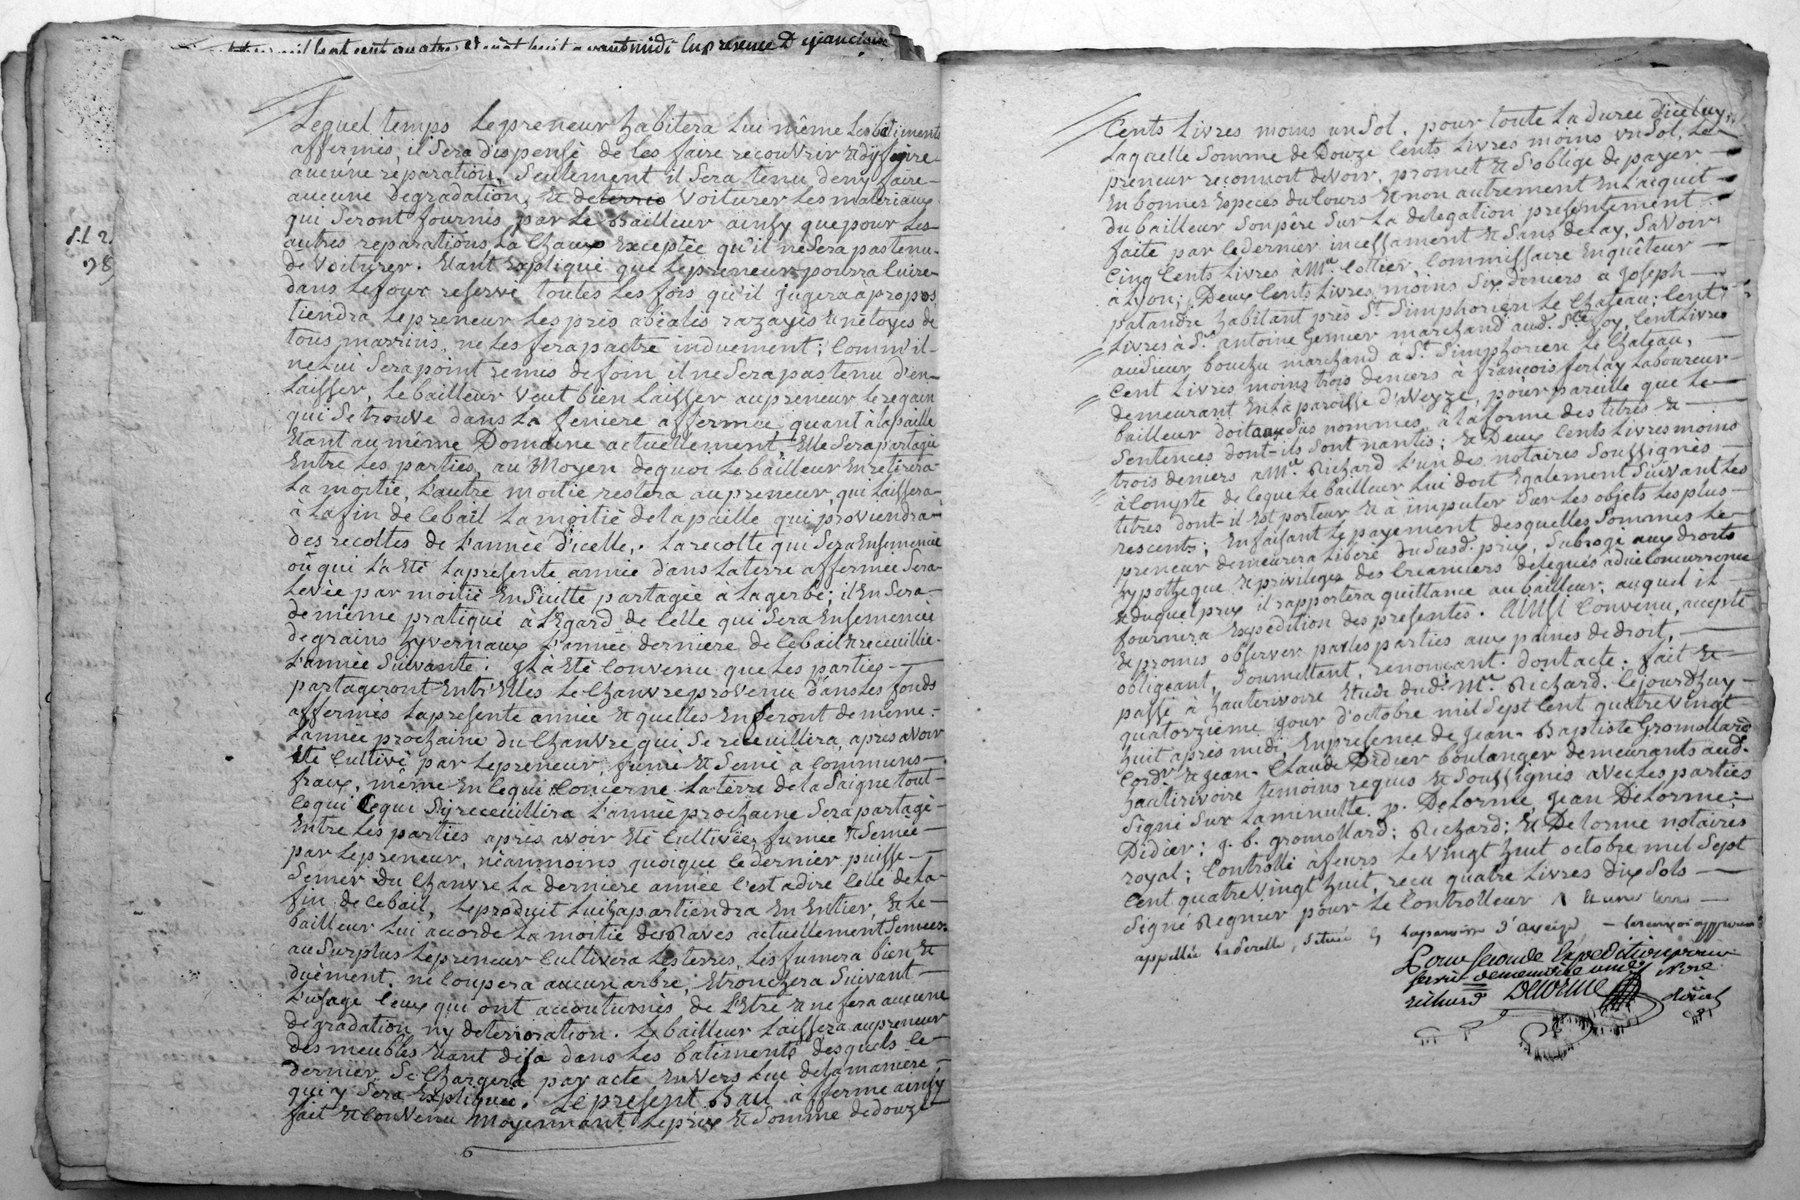 mil sept cent quatre vingt huit avant midi En presence De
Lequel temps Le preneur habitera Lui même Les batiments
affermés, il Sera dispensé de les faire recouvrir & dy faire
aucune reparation, Seulement il Sera tenu deny faire
aucune Degradation, & Voiturer Les materiaux
qui Seront fournis par Le Bailleur ainsy que pour Les
autres reparations La Chaux Exceptée qu'il ne Sera pas tenu
de Voiturer. Etant Expliqué que Le preneur pourra Cuire
dans Le four reservé toutes Les fois qu'il Jugera à propos
tiendra Le preneur Les prés abéalés razayés & nétoyés de
tous marrins, ne Les fera paitre induement; Comm'il
ne Lui Sera point remis de foin il ne Sera pas tenu d'en
Laisser, Le bailleur Veut bien Laisser au preneur Le regain
qui Se trouve dans La feniere affermée quant à La paille
Etant au même Domaine actuellement Elle Sera partagée
Entre Les parties, au Moyen de quoi Le bailleur En retirera
La moitié, L'autre moitié restera au preneur, qui Laissera
à La fin de Ce bail La moitié de La paille qui proviendra
des recoltes de L'année d'icelle. La recolte qui Sera Ensemencée
où qui L'a Eté La presente année dans La terre affermée Sera
Levée par moitié Ensuitte partagée à La gerbe; il En Sera
de même pratiqué à L'Egard de Celle qui Sera Ensemencée
de grains hyvernaux L'année derniere de Ce bail & receuillie
L'année Suivante. Il à Eté Convenu que Les parties
partageront Entr'Elles Le Chanvre provenu dans Les fonds
affermés La presente année & qu'elles En feront de même
L'année prochaine du Chanvre qui Se receuillira, apres avoir
Eté Cultivé par Le preneur, fumé & Semé à Communs
fraix, même En Ce qui Concerne La terre de la Saigne tout
Ce qui Ce qui S'y receuillira L'année prochaine Sera partagé
Entre Les parties après avoir Eté Cultivée, fumée & Semée
par Le preneur, néanmoins quoique Ce dernier puisse
Semer du Chanvre La derniere année C'est à dire Celle de La
fin de Ce bail, Le produit Lui apartiendra En Entier, & Le
bailleur Lui accorde La moitié des Raves actuellement Semées
au Surplus Le preneur Cultivera Les terres, Les fumera bien &
duëment, ne Coupera aucun arbre, Etronchera Suivant
L'usage Ceux qui ont accoutumés de L'Etre & ne fera aucune
degradation ny deterioration. Le bailleur Laissera au preneur
des meubles Etant déja dans Les batiments desquels Ce
dernier Se Chargera par acte Envers Lui de La maniere
qui y Sera Expliquée. Le present Bail à ferme ainsy
fait & Convenu Moyennant Le prix & Somme de douze
6
Cents Livres moins un Sol, pour toute La Durée d'iceluy,
Laquelle Somme de Douze Cents Livres moins un Sol, Le
preneur reconnoit devoir, promet & S'oblige de payer
En bonnes Especes du Cours & non autrement En L'acquit
du bailleur Son père Sur La delegation presentement
faite par Ce dernier incessament & Sans delay, Savoir
Cinq Cents Livres à Me. Cottier Commissaire Enquêteur
à Lyon; Deux Cents Livres, moins Six deniers à Joseph
patandre habitant près St. Simphorien Le Chateau; Cent
Livres à Sr. antoine Genier marchand aud. Ste foy, Cent Livres
au Sieur bouchu marchand à St. Simphorien Le Chateau,
Cent Livres moins trois deniers à françois ferlay Laboureur
demeurant En La paroisse d'aveyze, pour pareille que Le
bailleur doit aux Sus nommés, à La forme des titres &
Sentences dont-ils Sont nantis; & Deux Cents Livres moins
trois deniers a Me. Richard L'un des notaires Soussignés
à Compte de Ce que Le bailleur Lui doit Egalement Suivant Les
titres dont-il Est porteur & à imputer Sur Les objets Les plus
rescents; En faisant Le payement desquelles Sommes Le
preneur demeurera Liberé du Susd. prix, Subrogé aux droits
hypotheque & privileges des Creanciers delegués à due Concurrence
& duquel prix il rapportera quittance au bailleur, auquel il
fournira Expédition des presentes. Ainsi Convenu, accepté
& promis observer par les parties aux peines de droit,
obligeant, Soumettant, renonçant. dont acte. fait &
passé à hauterivoire Etude dudt. Me. Richard. Le jourdhuy
quatorzieme jour d'octobre mil Sept Cent quatre Vingt
huit apres midi, En presence de Jean-Baptiste Gromollard
Cordr. & Jean-Claude Didier boulanger demeurants aud.
hauterivoire temoins requis & Soussignés avec Les parties
Signé Sur La minutte. p. Delorme, Jean Delorme;
Didier; J. b. gromollard; Richard; & Delorme notaires
royal; Controllé à feurs Le Vingt huit octobre mil Sept
Cent quatre Vingt huit, reçu quatre Livres dix Sols
Signé Regnier pour Le Controlleur & une terre
appellée, Située La paroisse d'aveize,
Pour Seconde Expedition pour
Servir de memoire
richard Delorme